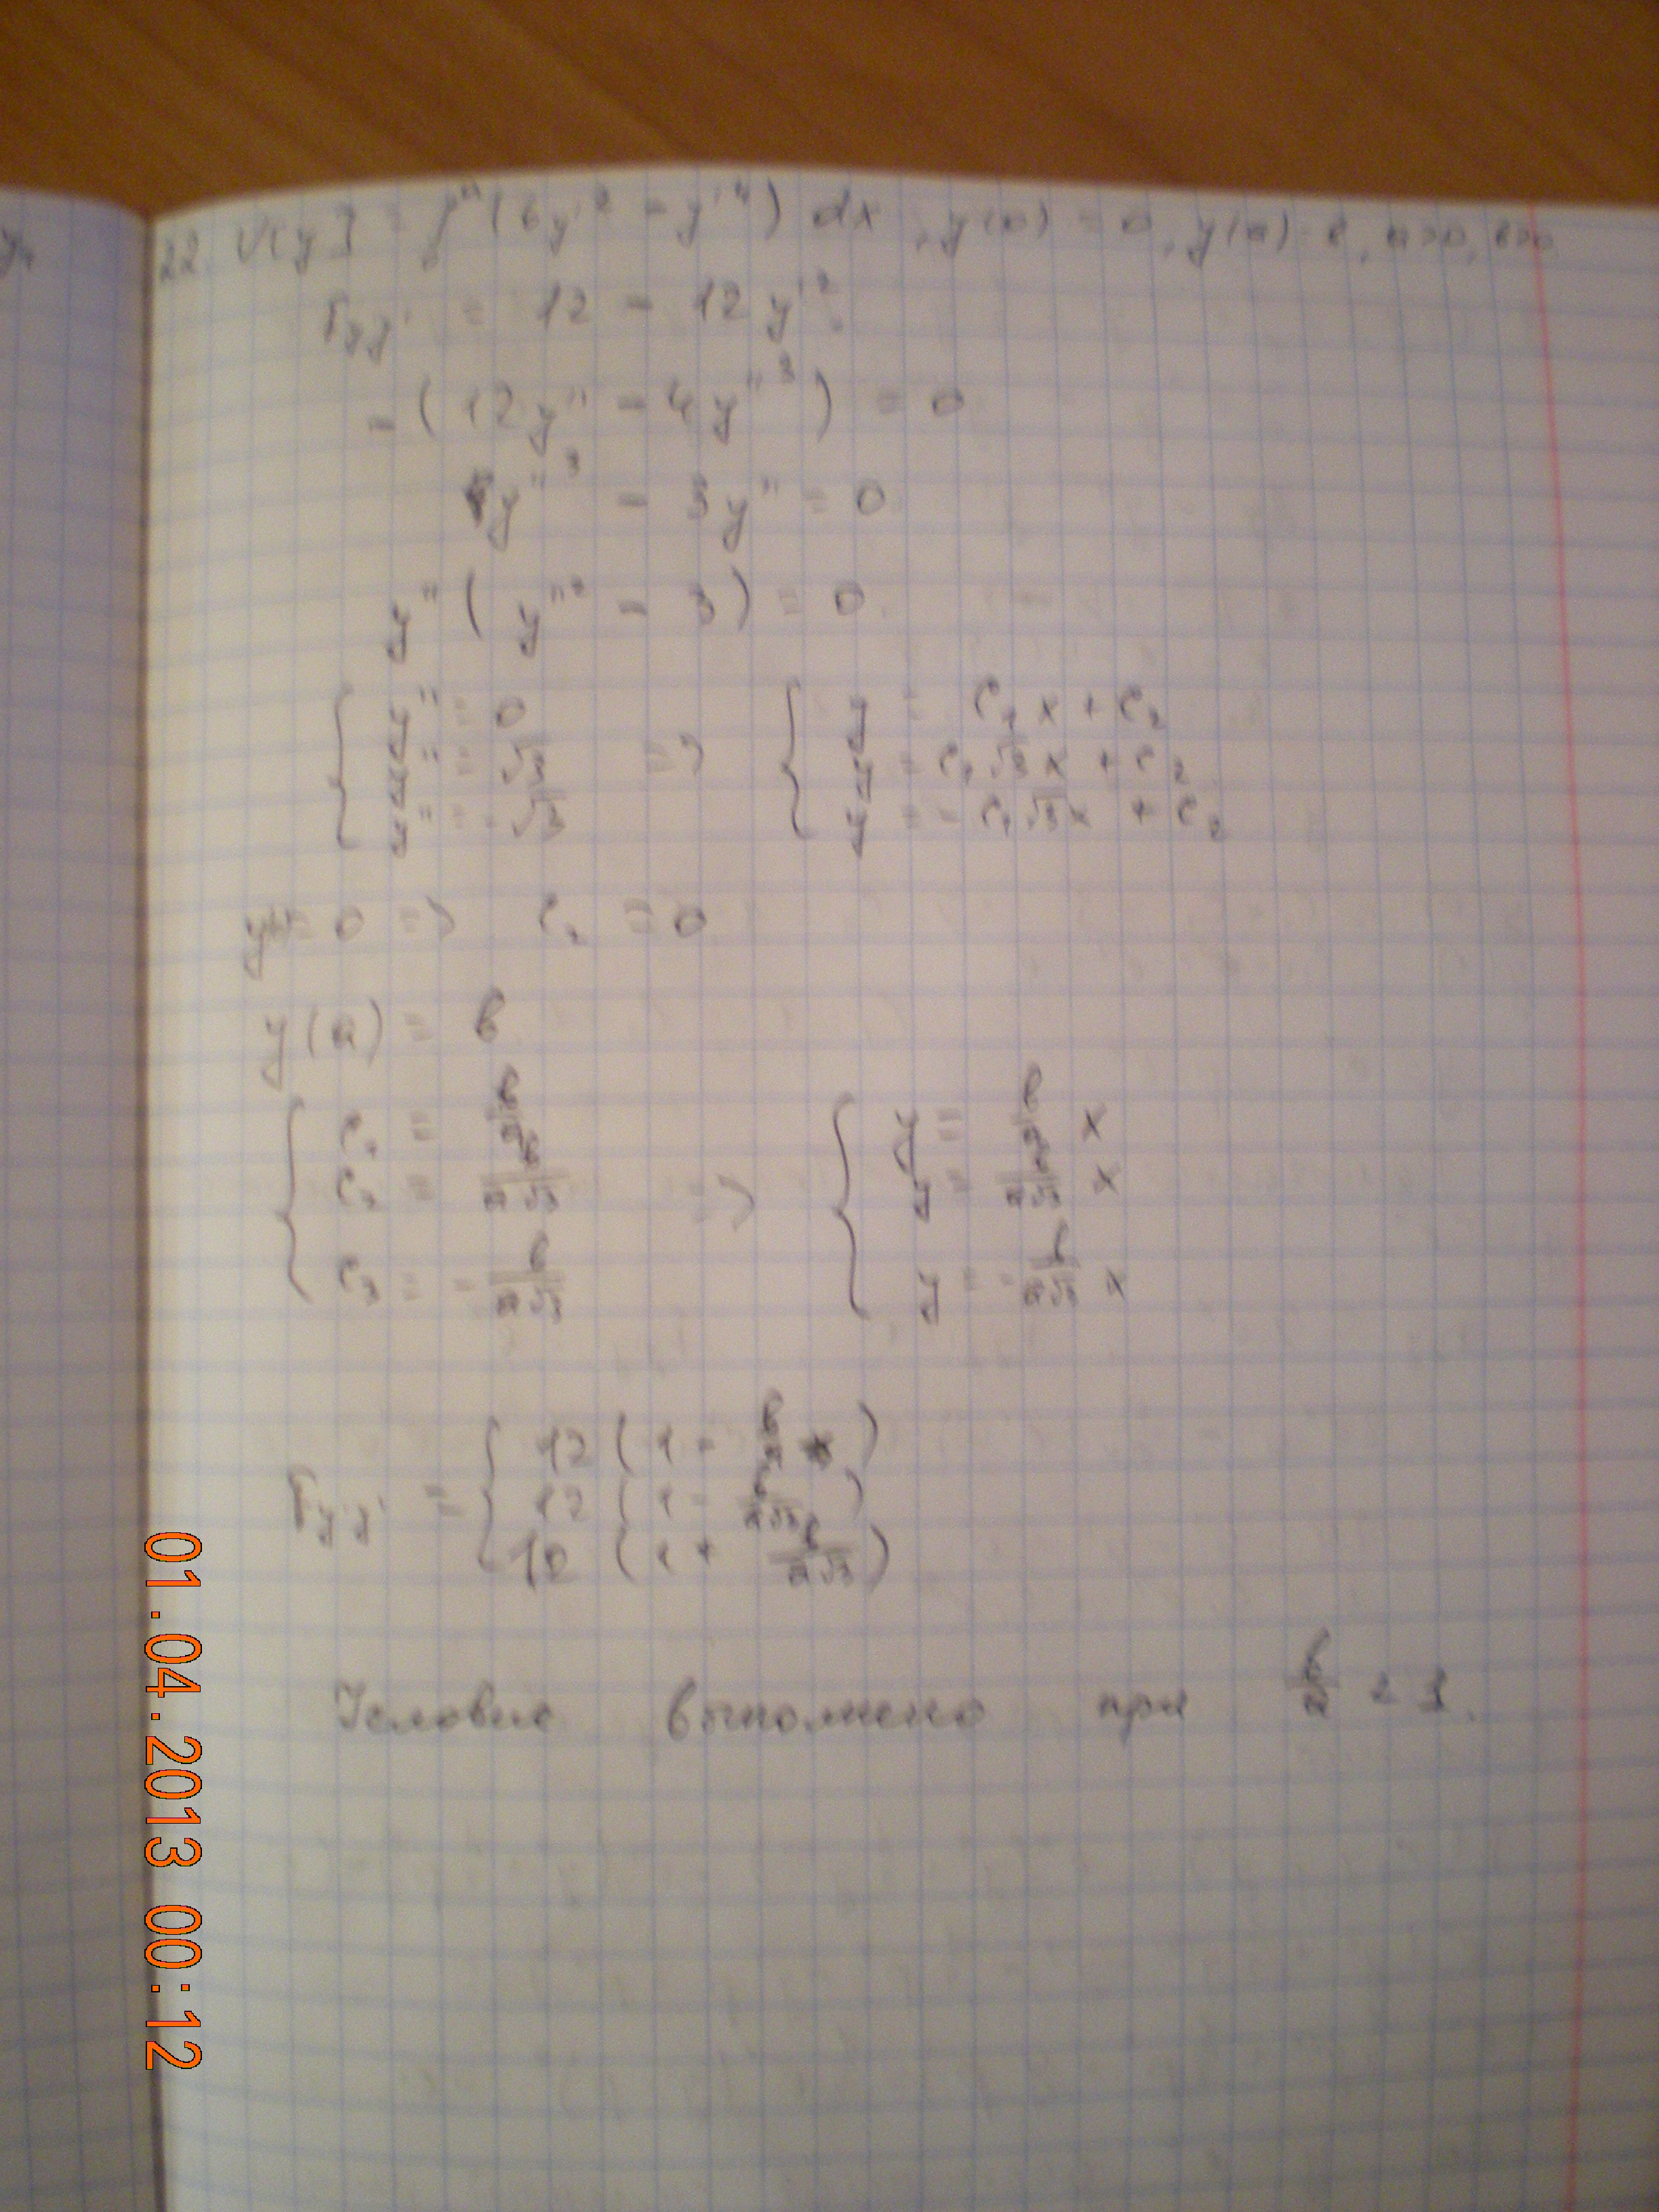 22. V[y] = ∫ᵃ (6y'² - y'⁴) dx, y(0) = 0, y(a) = b, a>0, b>0
F_y'y' = 12 - 12y'²
-(12y'' - 4y''³) = 0
y''³ - 3y'' = 0
y''(y''² - 3) = 0
{ y'' = 0
y'' = √3 => { y = C₁x + C₂
y = C₁√3x + C₂
y'' = -√3
y = -C₁√3x + C₂
y = 0 => C₂ = 0
y(a) = b
{ C₁ = b/a
C₁ = b/(a√3)
C₁ = -b/(a√3)
=> { y = b/a x
y = b/(a√3) x
y = -b/(a√3) x
F_y'y' = { 12(1 - b/a)
12(1 - b/(a√3))
12(1 + b/(a√3))
Условие выполнено при b/a < 1.
01.04.2013 00:12